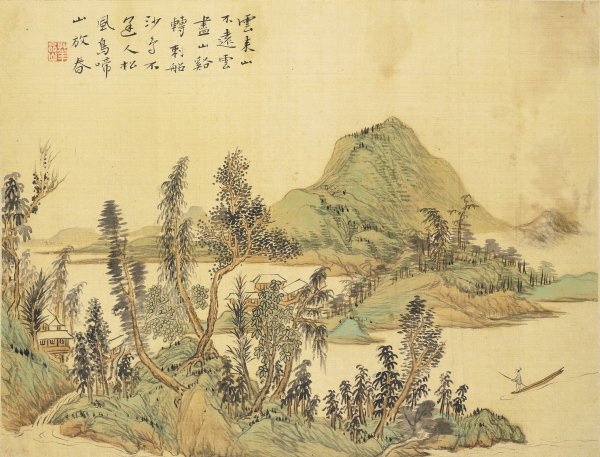 雲来山
不遠雲
盡山谿
轉刺船
沙亭不
逢人松
風鳥啼
山放春